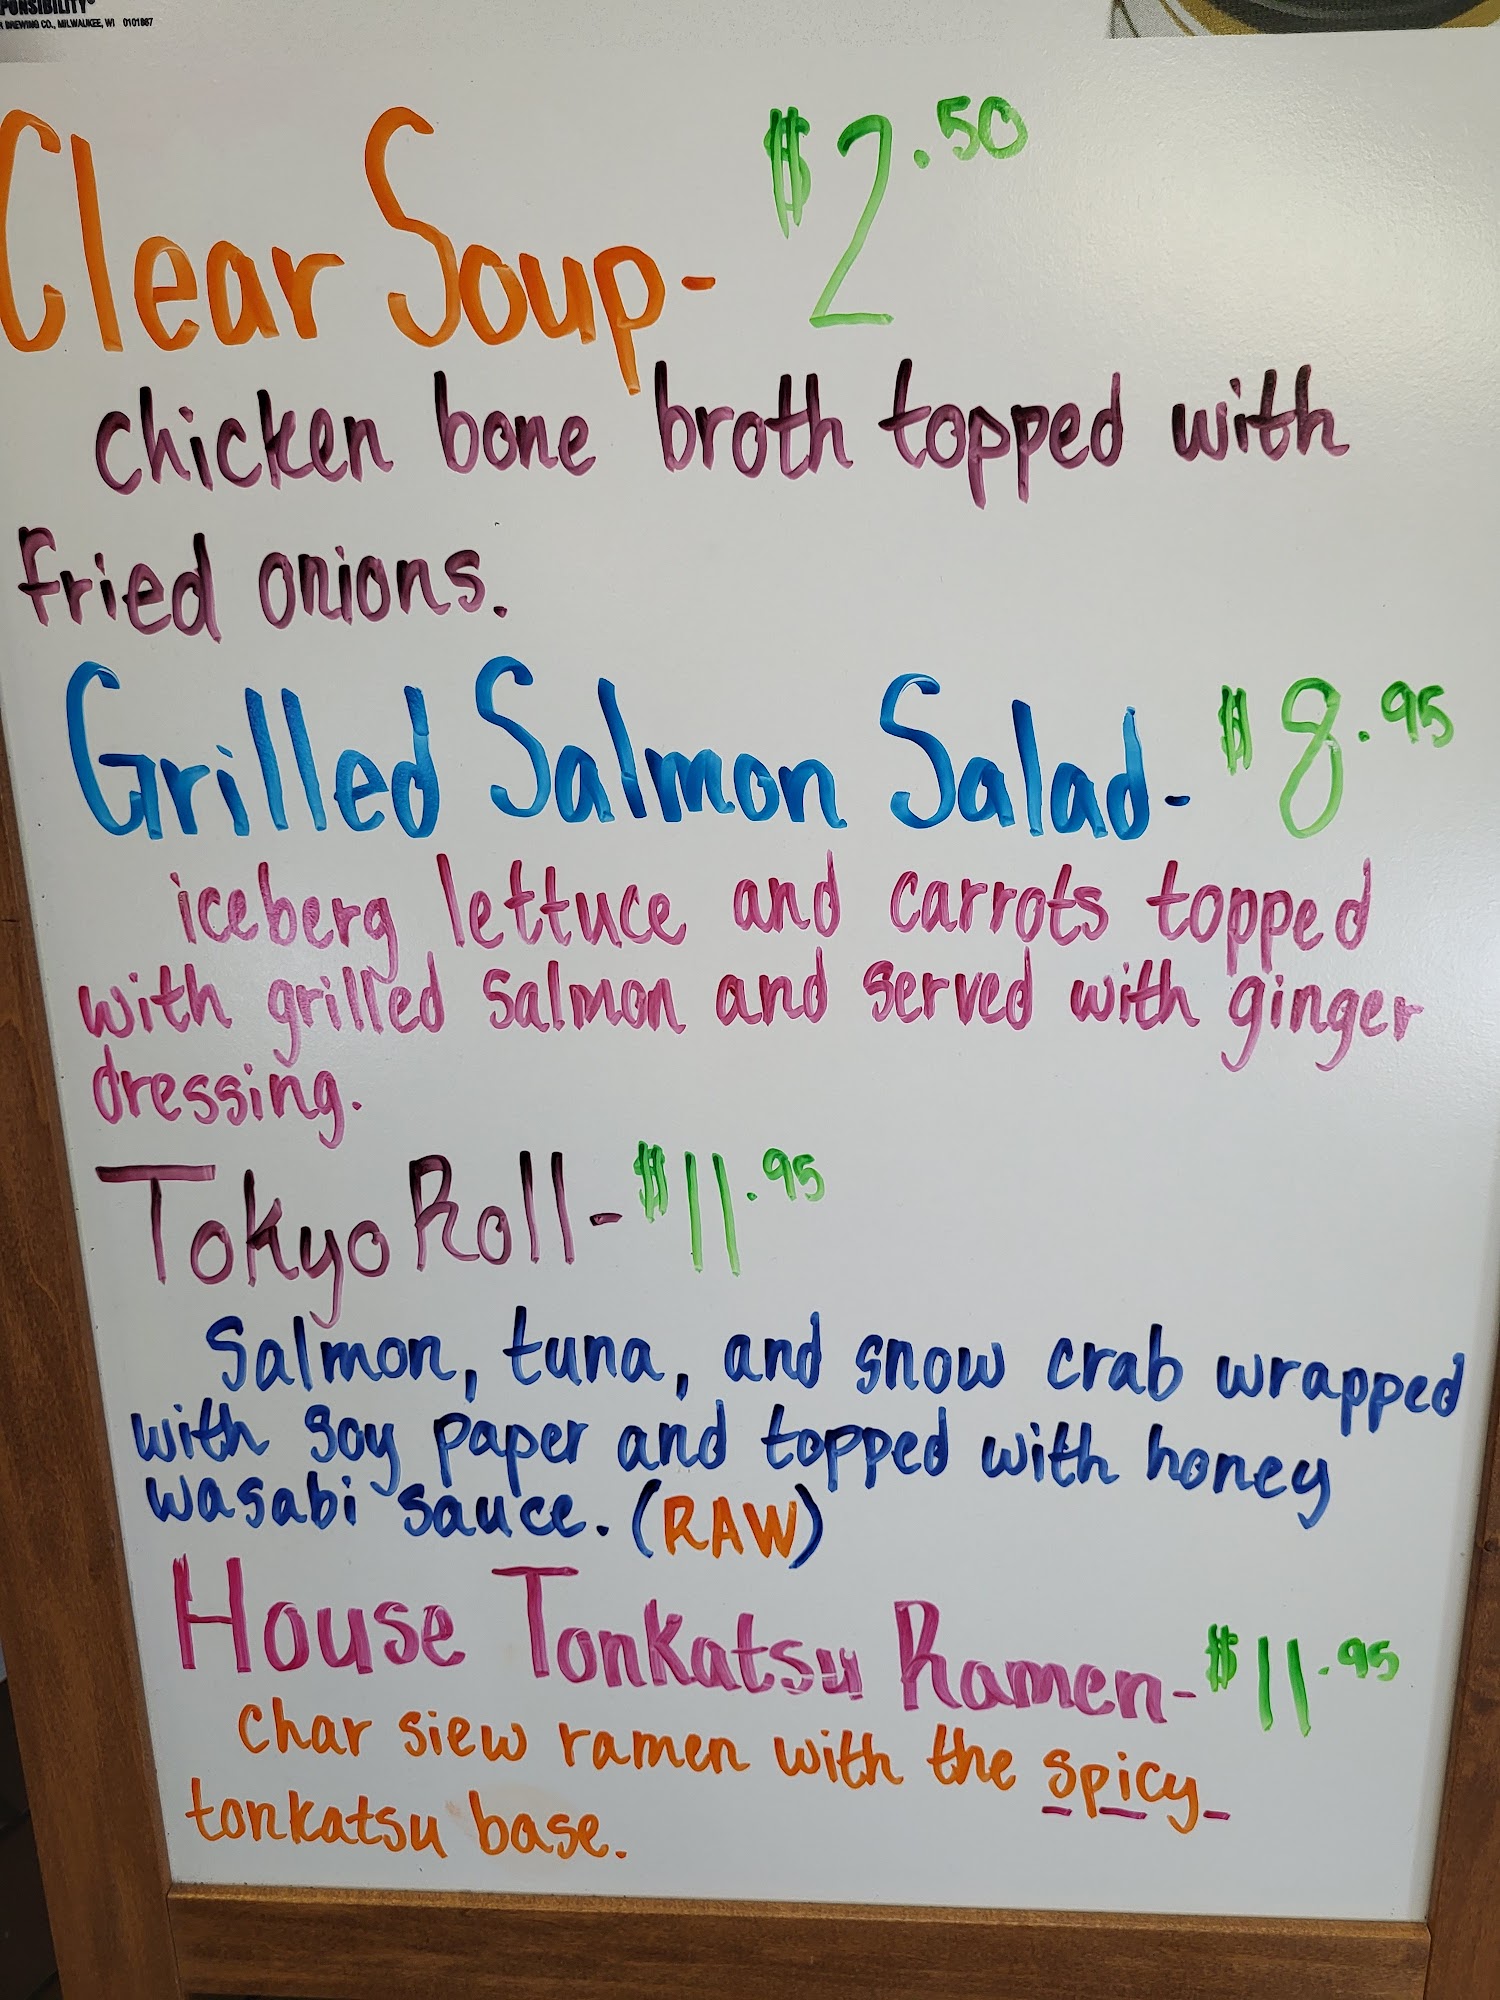 BREWING CO., MILWAUKEE, WI 0101867
Clear Soup- $2.50
chicken bone broth topped with
fried onions.
Grilled Salmon Salad- $8.95
iceberg lettuce and carrots topped
with grilled salmon and served with ginger
dressing.
Tokyo Roll- $11.95
Salmon, tuna, and snow crab wrapped
with soy paper and topped with honey
wasabi sauce. (RAW)
House Tonkatsu Ramen- $11.95
char siew ramen with the spicy
tonkatsu base.